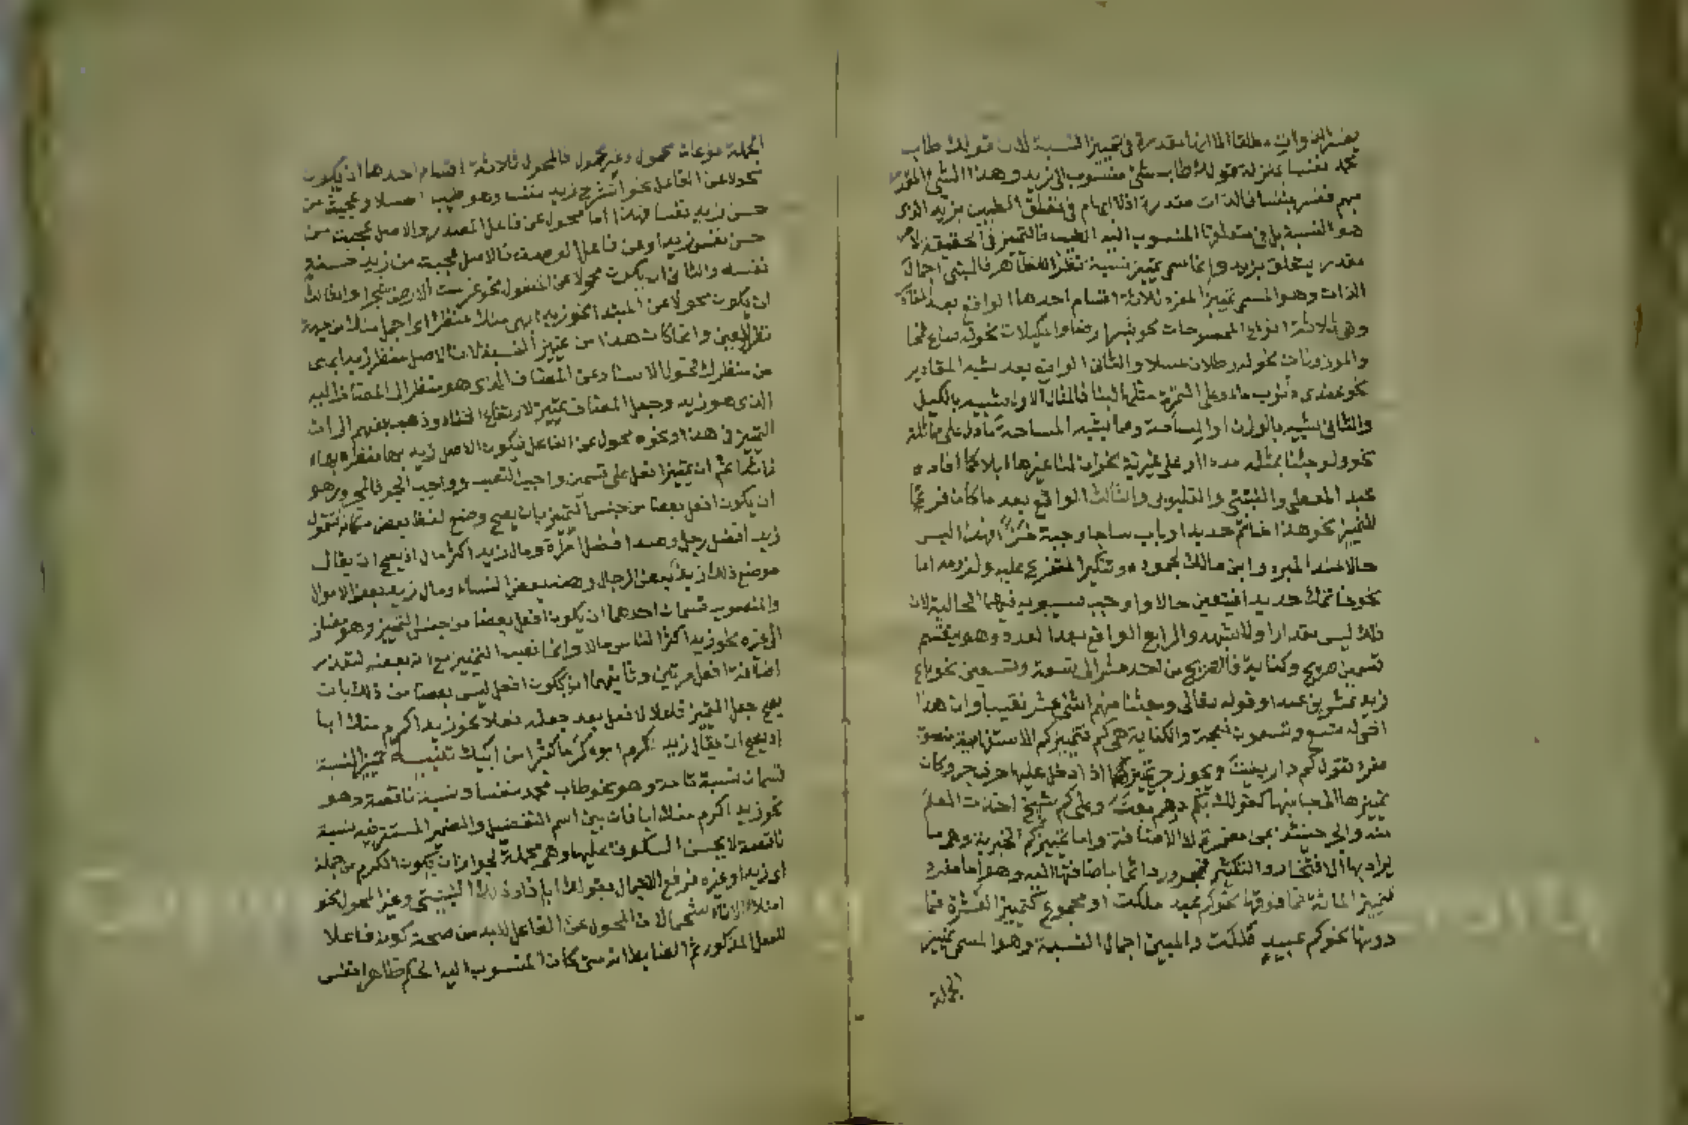 يفسر الذوات مطلقا اما انها مقدرة في تمييز النسبة لان قولك طاب
محمد نفسا بمنزلة قولك طاب شئ منسوب الى زيد وهذا الشئ المقدر
مبهم ففسر بنفسا فالذات مقدرة اذ لا ابهام في تعلق الطيب بزيد الذي
هو النسبة بل في متعلق المنسوب اليه الطيب فالتمييز في الحقيقة لامر
مقدر يتعلق بزيد وانما سمى تمييز نسبة نظرا للظاهر فالمبين اجمال
الذات وهو المسمى تمييز المفرد ثلاثة اقسام احدها الواقع بعد المقادير
وهي ثلاثة انواع الممسوحات كشبر ارضا والمكيلات نحو صاع تمرا
والموزونات نحو رطلان عسلا والثاني الواقع بعد شبه المقادير
نحو عندي ذنوب ماء وعلى التمرة مثلها لبنا فالمثال الاول شبيه بالكيل
والثاني شبيه بالوزن او المساحة ومما يشبه المساحة ما دل على مماثلة
نحو ولو جئنا بمثله مددا او على غيرية نحو ان لنا غيرها ابلا كما افاده
عبد المعطي والنبتيتي والقليوبي والثالث الواقع بعد ما كان فرعا
للتمييز نحو هذا خاتم حديدا وباب ساجا وجبة خزا فهذا ليس
حالا عند المبرد وابن مالك لجموده وتنكير المتفرع عليه ولزومه اما
نحو خاتمك حديدا فيتعين حالا واوجب سيبويه فيهما الحالية لان
ذلك ليس مقدارا ولا شبهه والرابع الواقع بعد العدد وهو ينقسم
قسمين صريح وكناية فالصريح من احد عشر الى تسعة وتسعين نحو باع
زيد عشرين عبدا وقوله تعالى وبعثنا منهم اثني عشر نقيبا وان هذا
اخي له تسع وتسعون نعجة والكناية هي كم فتمييز كم الاستفهامية منصوب
مفرد تقول كم دارا بنيت ويجوز جر تمييزها اذا دخل عليها حرف جر وكان
تمييزها الى جانبها كقولك بكم درهم بعت وعلى كم شيخ اخذت العلم
عنه والجر حينئذ بمن مضمرة لا الاضافة واما تمييز كم الخبرية وهي ما
يراد بها الافتخار والتكثير فمجرور دائما باضافتها اليه وهو اما مفرد
كتمييز المائة فما فوقها نحو كم عبد ملكت او مجموع كتمييز العشرة فما
دونها نحو كم عبيد ملكت والمبين اجمال النسبة وهو المسمى تمييز
الجملة
الجملة نوعان محمول وغير محمول فالمحول ثلاثة اقسام احدها ان يكون
محولا عن الفاعل نحو انشرح زيد نفسا وهو طيب اصلا وعجبت من
حسن زيد نفسا فهذا اما محول عن فاعل المصدر والاصل عجبت من
حسن نفس زيد او عن فاعل الوصف فالاصل عجبت من زيد حسنة
نفسه والثاني ان يكون محولا عن المفعول نحو غرست الارض شجرا والثالث
ان يكون محولا عن المبتدا نحو زيد ابهى منك منظرا اي اجمل منك من جهة
نظر العين وانما كان هذا من تمييز النسبة لان الاصل منظر زيد ابهى
من منظرك فحول الاسناد عن المضاف الذي هو منظر الى المضاف اليه
الذي هو زيد وجعل المضاف تمييزا لارتفاع الخفاء وذهب بعضهم الى ان
التمييز في هذا ونحوه محول عن الفاعل فيكون الاصل زيد بها منظره بهاء
زائدا ثم ان تمييز افعل على قسمين واجب النصب وواجب الجر فالمجرور هو
ان يكون افعل بعضا من جنس التمييز بان يصح وضع لفظ بعض مكانه فتقول
زيد افضل رجل وهند افضل امرأة ومال زيد اكثر مال اذ يصح ان يقال
موضع ذلك زيد بعض الرجال وهند بعض النساء ومال زيد بعض الاموال
والمنصوب قسمان احدهما ان يكون افعل بعضا من جنس التمييز وهو مضاف
الى غيره نحو زيد اكثر الناس مالا وانما نصب التمييز مع انه بعضه لتعذر
اضافة افعل مرتين وثانيهما ان يكون افعل ليس بعضا من ذلك بان
يصح جعل التمييز فاعلا لافعل بعد جعله فعلا نحو زيد اكرم منك ابا
اذ يصح ان يقال زيد كرم ابوه كرما كثيرا من ابيك تنبيه تمييز النسبة
قسمان نسبة تامة وهو نحو طاب محمد نفسا ونسبة ناقصة وهو
نحو زيد اكرم منك ابا فان بين اسم التفضيل والضمير المستتر فيه نسبة
ناقصة لا يحسن السكوت عليها وهي مجملة لجواز ان يكون الكرم من جملة
اي زيد او غيره فرفع الاجمال بقوله ابا افاد ذلك النبتيتي وغير المحول نحو
امتلأ الاناء لان المحول عن الفاعل لابد من صحة كونه فاعلا
للفعل المذكور ثم الضابط انه متى كان المنسوب اليه الحكم ظاهرا نفس